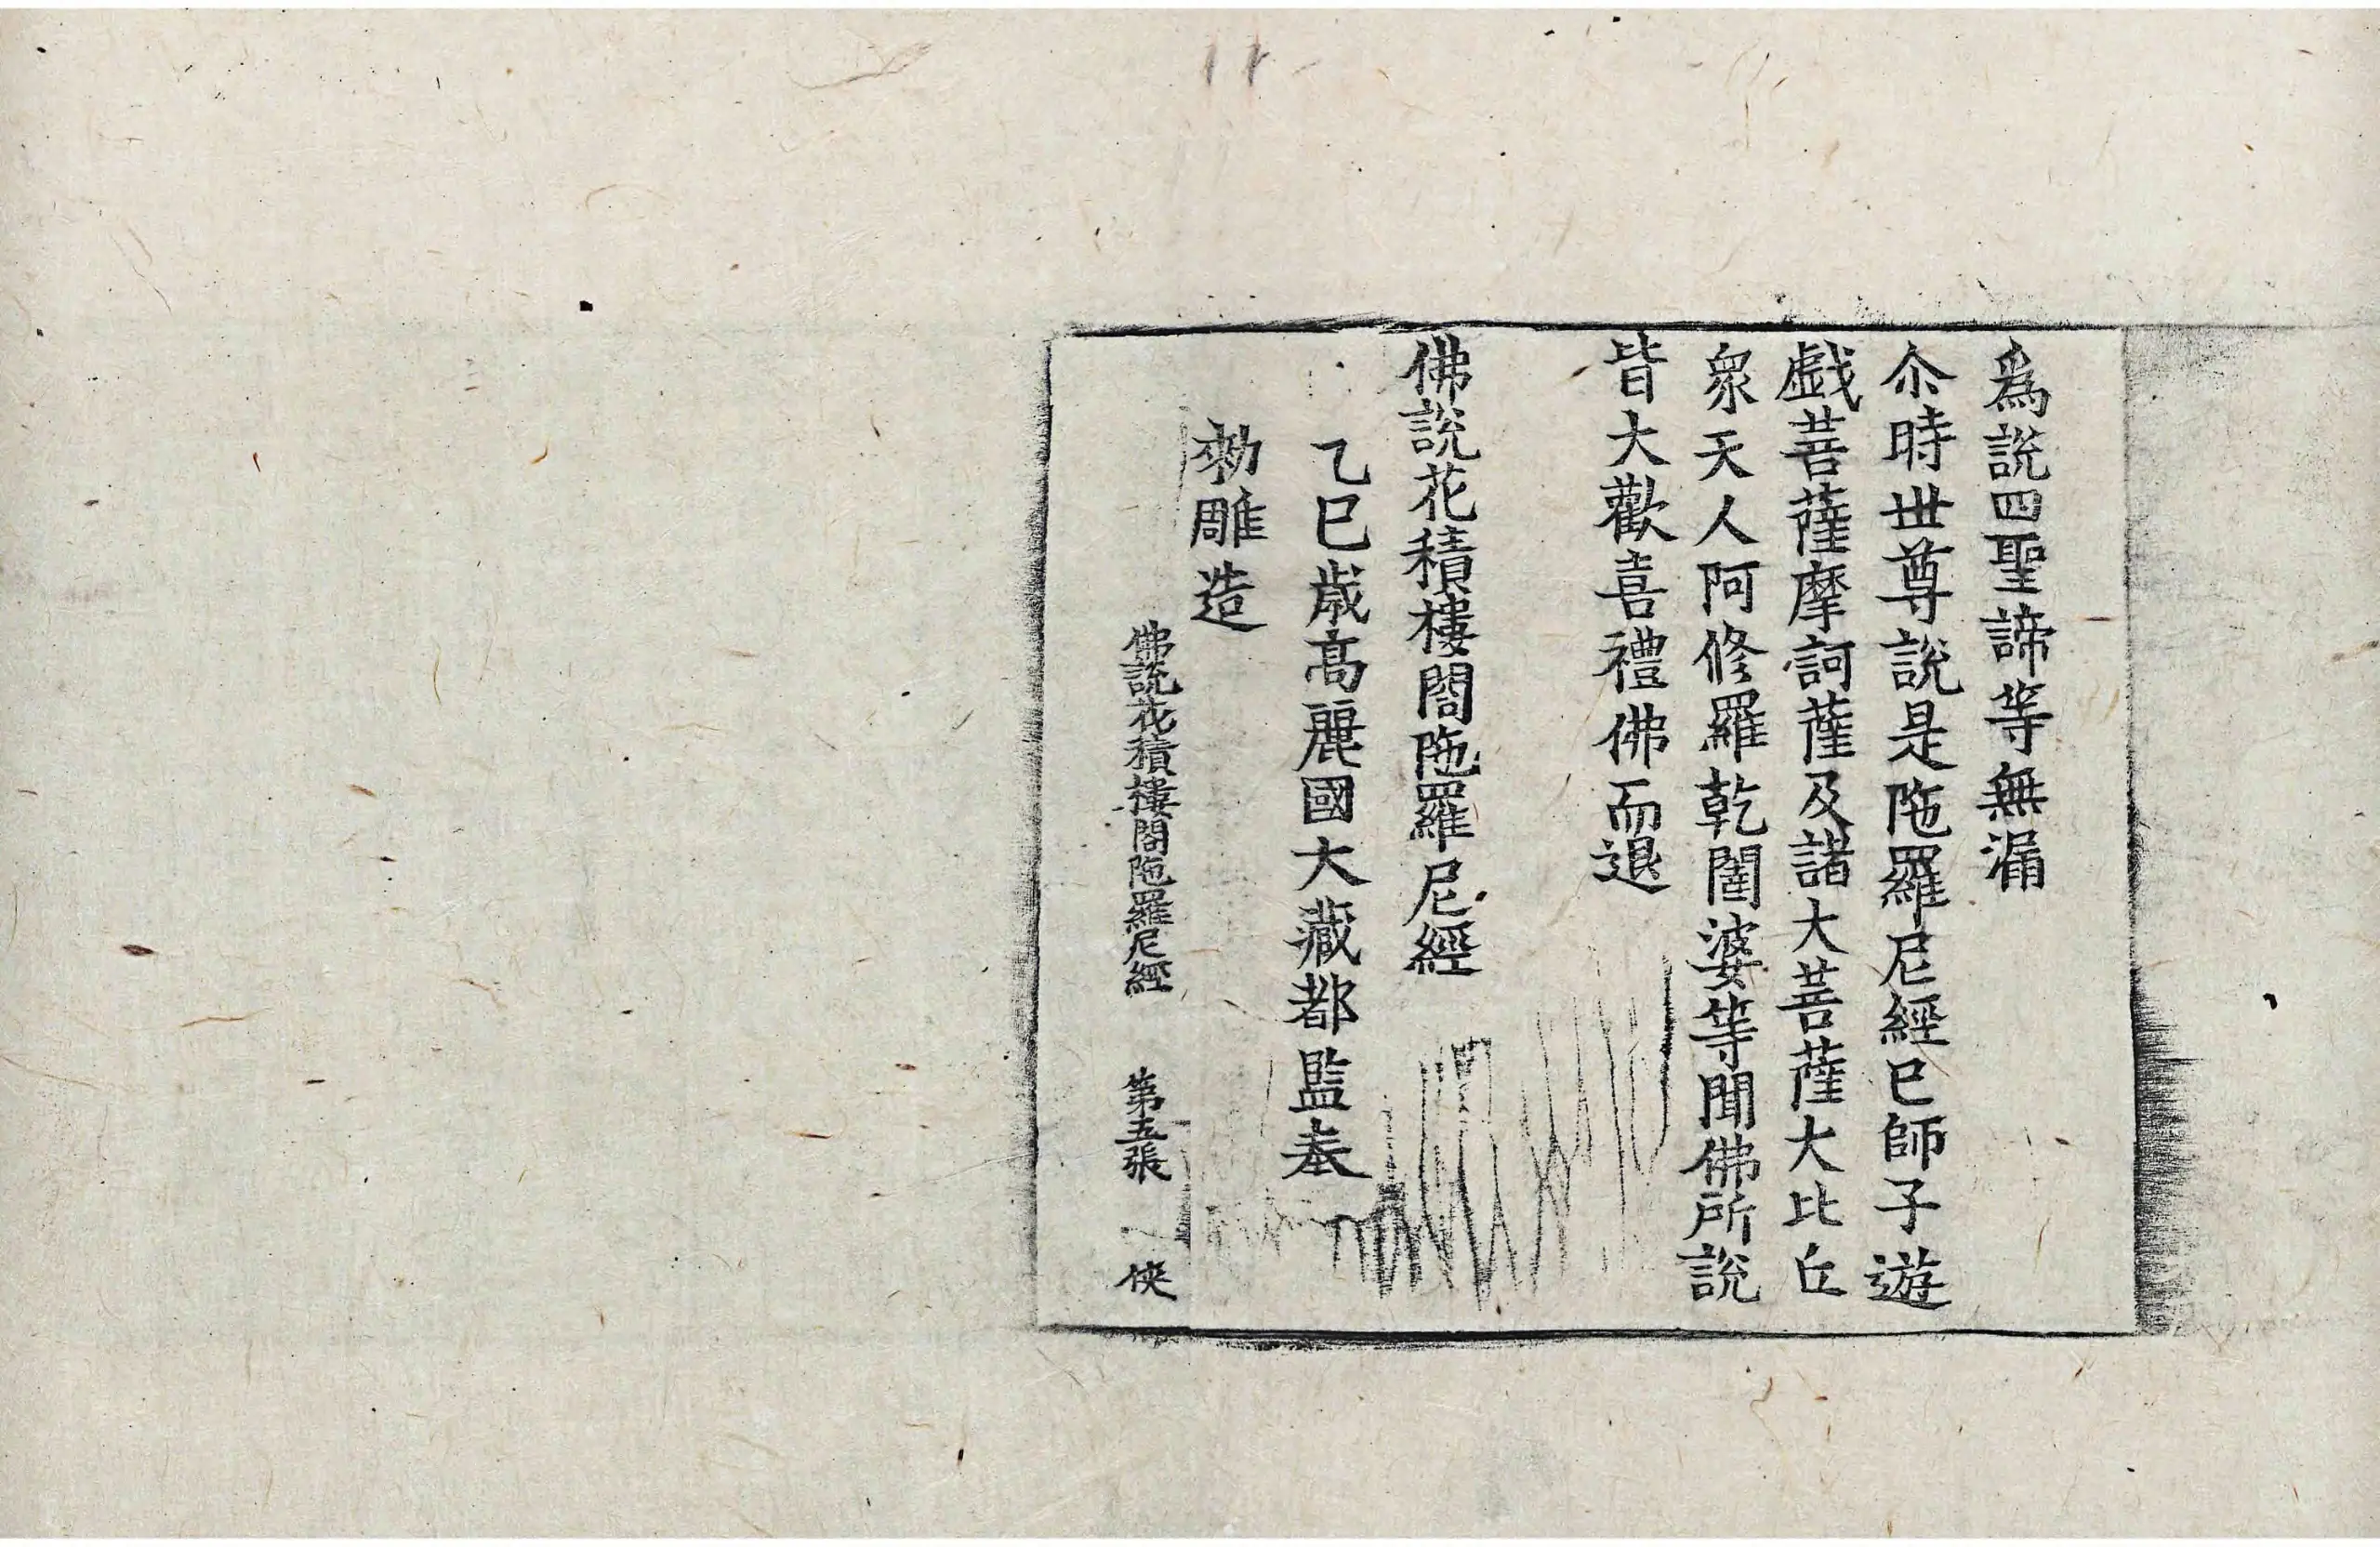 爲說四聖諦等無漏
尒時世尊說是陁羅尼經已師子遊
戱菩薩摩訶薩及諸大菩薩大比丘
衆天人阿修羅乾闥婆等聞佛所說
皆大歡喜禮佛而退
佛說花積樓閣陁羅尼經
乙巳歲高麗國大藏都監奉
勑雕造
佛說花積樓閣陁羅尼經 第五張 俠